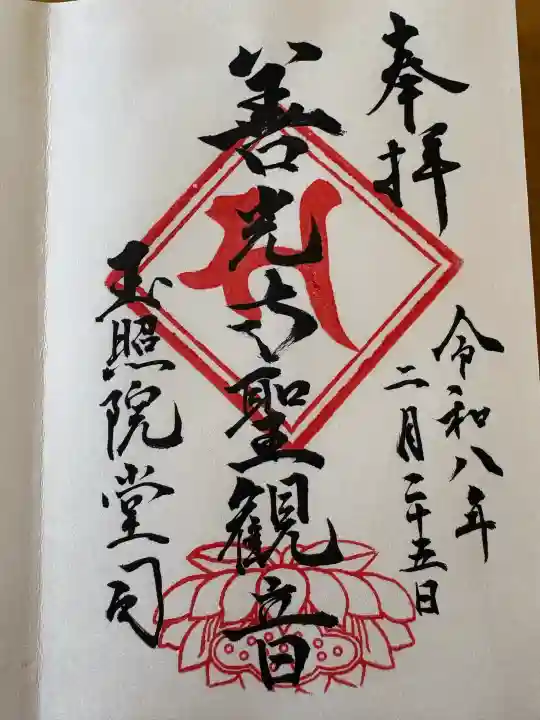 奉拝
令和八年
二月二十五日
善光寺聖観音
玉照院堂司